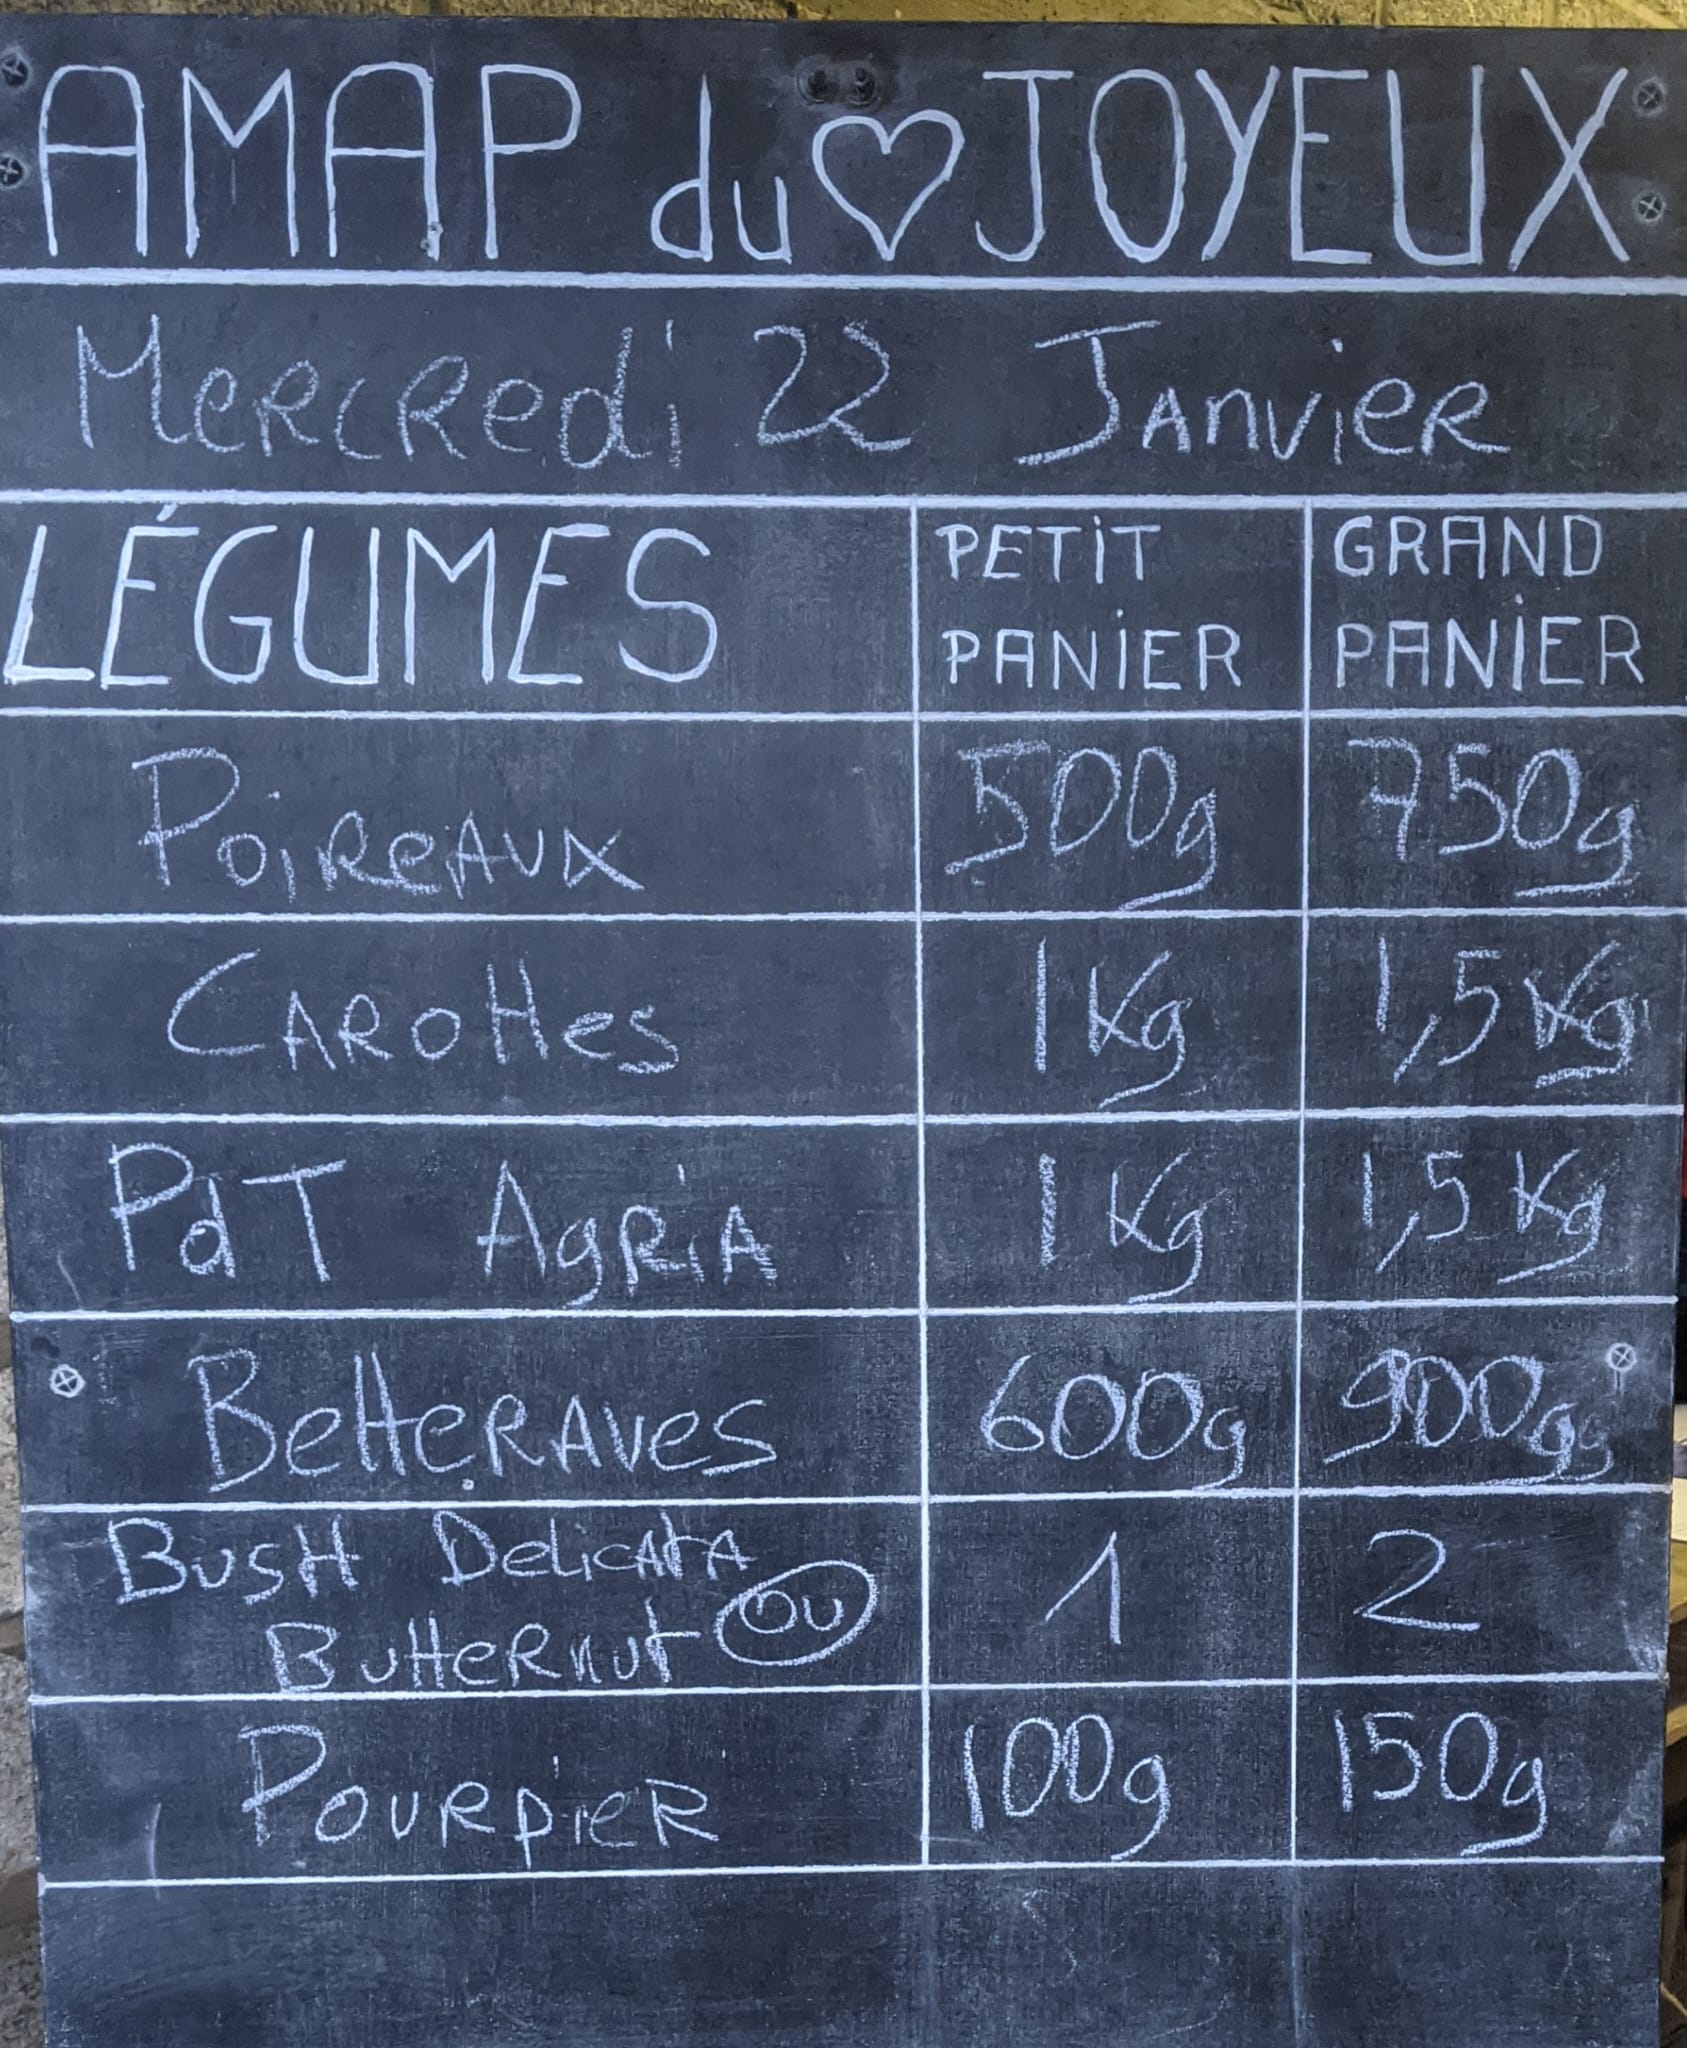 AMAP du ♡ JOYEUX
Mercredi 22 Janvier
LÉGUMES PETIT PANIER GRAND PANIER
Poireaux 500g 750g
Carottes 1 Kg 1,5 Kg
PdT Agria 1 Kg 1,5 Kg
Betteraves 600g 900g
Bush Delicata
Butternut OU 1 2
Pourpier 100g 150g